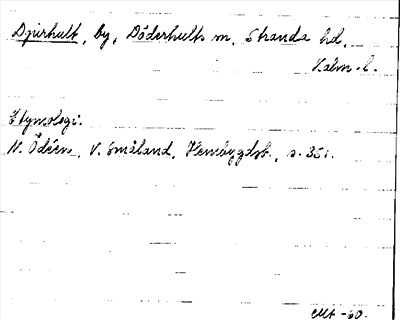 Djurhult, by, Döderhults sn, Stranda hd,
Kalm. l.
Etymologi.
N. Ödéen, V. Småland, Hembygdsb., s. 351.
-60.